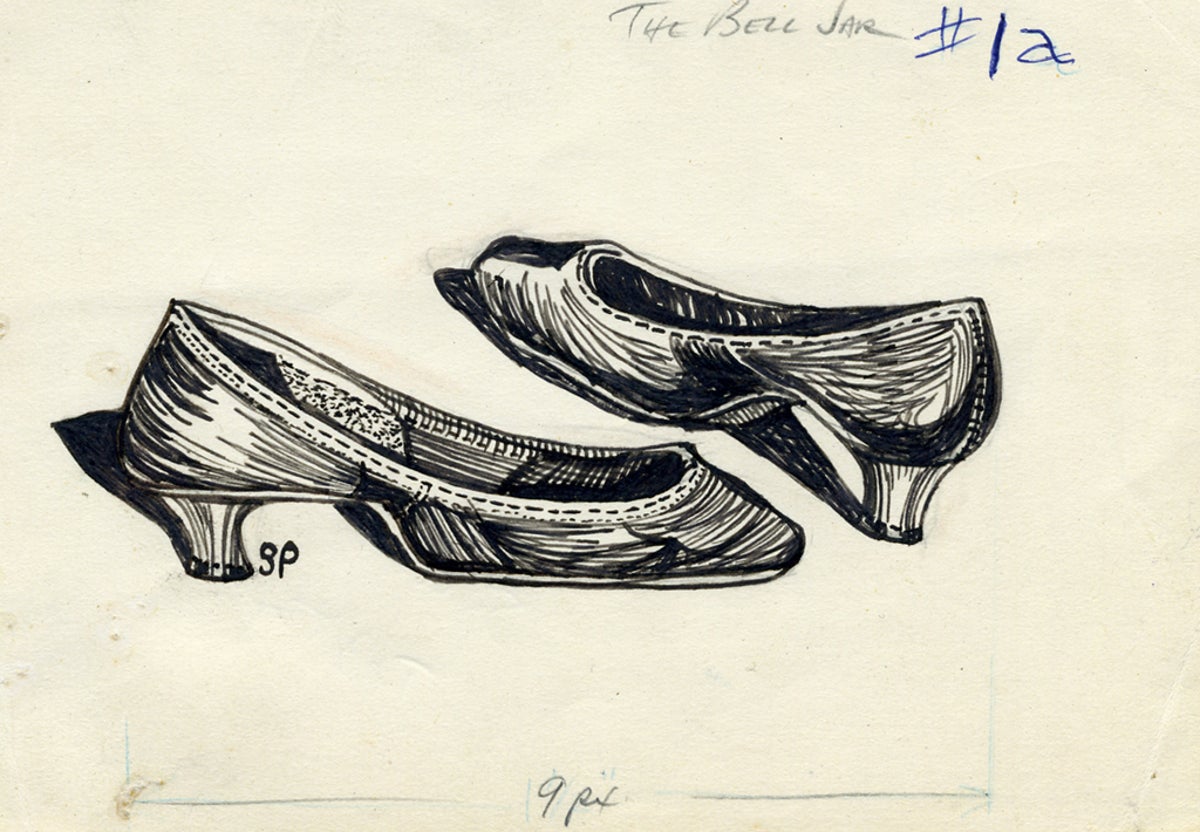 THE BELL JAR #1a
SP
9 px